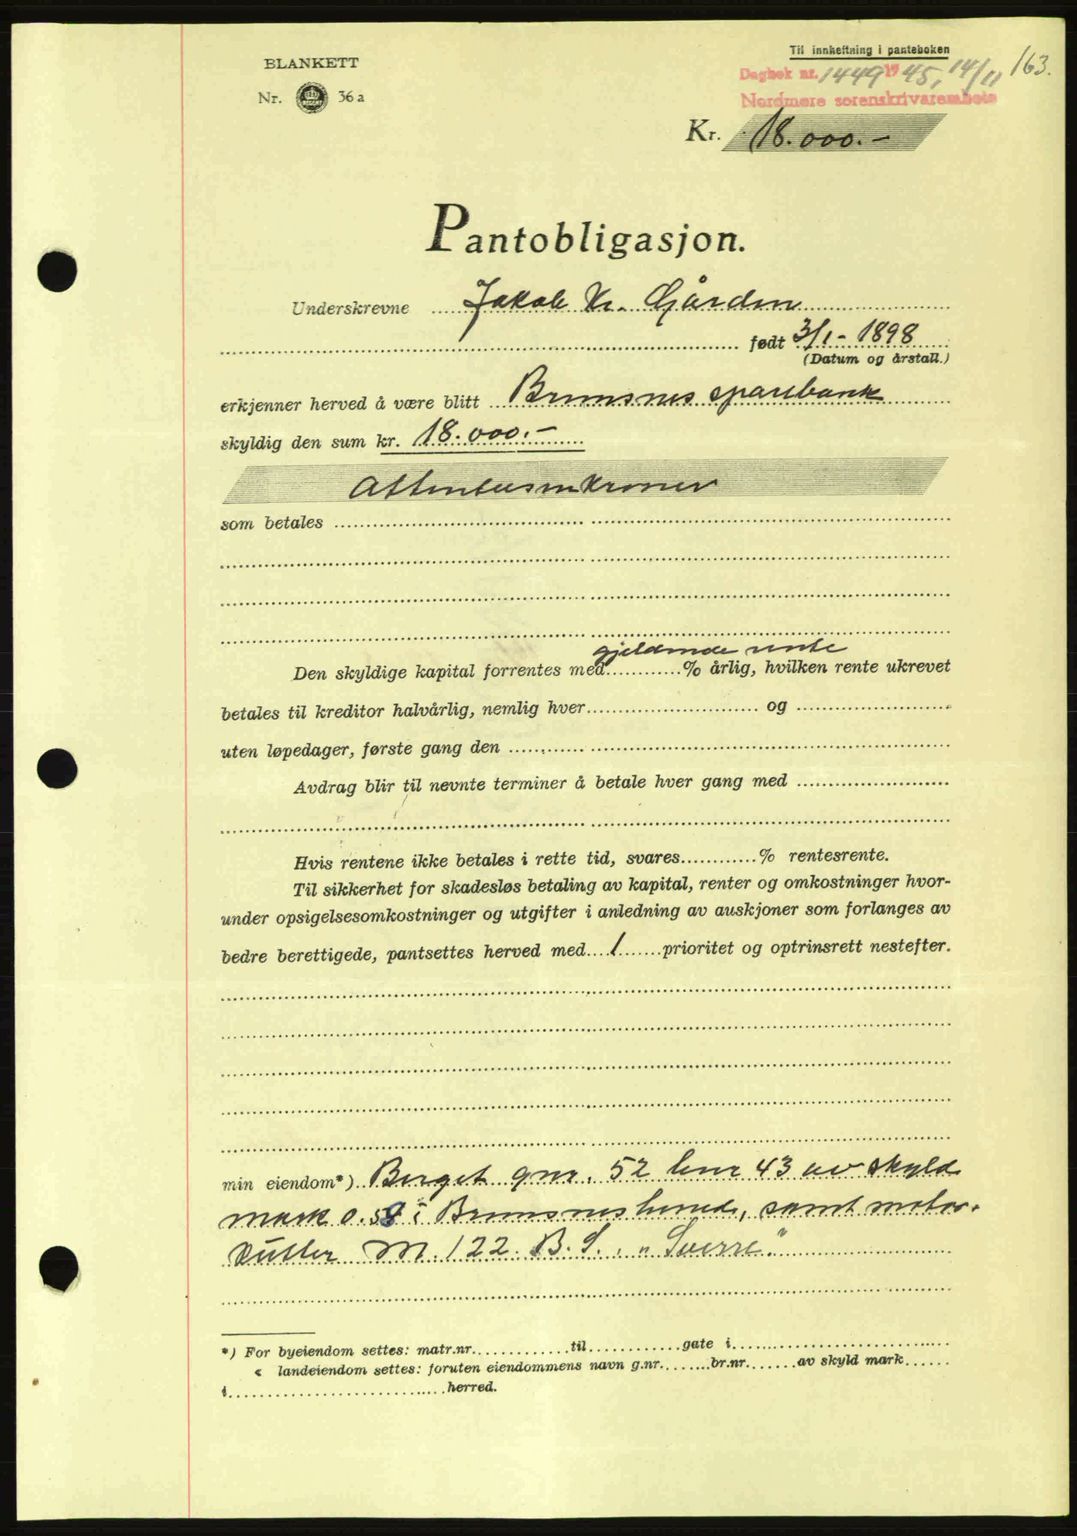 Til innheftning i panteboken
BLANKETT
Nr. 36 a
Dagbok nr. 1449 1945, 14/11 163.
Nordmøre sorenskriverembete
Kr. 18.000.-
Pantobligasjon.
Underskrevne Jakob Kr. Gården
født 3/1-1898
(Datum og årstall.)
erkjenner herved å være blitt Bremsnes sparebank
skyldig den sum kr. 18.000.-
Attentusen kroner
som betales
gjeldende rente
Den skyldige kapital forrentes med............% årlig, hvilken rente ukrevet
betales til kreditor halvårlig, nemlig hver.......................... og
uten løpedager, første gang den
Avdrag blir til nevnte terminer å betale hver gang med
Hvis rentene ikke betales i rette tid, svares............% rentesrente.
Til sikkerhet for skadesløs betaling av kapital, renter og omkostninger hvor-
under opsigelsesomkostninger og utgifter i anledning av auskjoner som forlanges av
bedre berettigede, pantsettes herved med....1......prioritet og optrinsrett nestefter.
min eiendom*) Berget gnr. 52 bnr 43 av skyld
mark 0.58 i Bremsnes herred, samt motor-
kutter M. 122 B.S. „Sverre"
*) For byeiendom settes: matr.nr..............til..............gate i
« landeiendom settes: foruten eiendommens navn g.nr........br.nr.......av skyld mark......
i..............................herred.